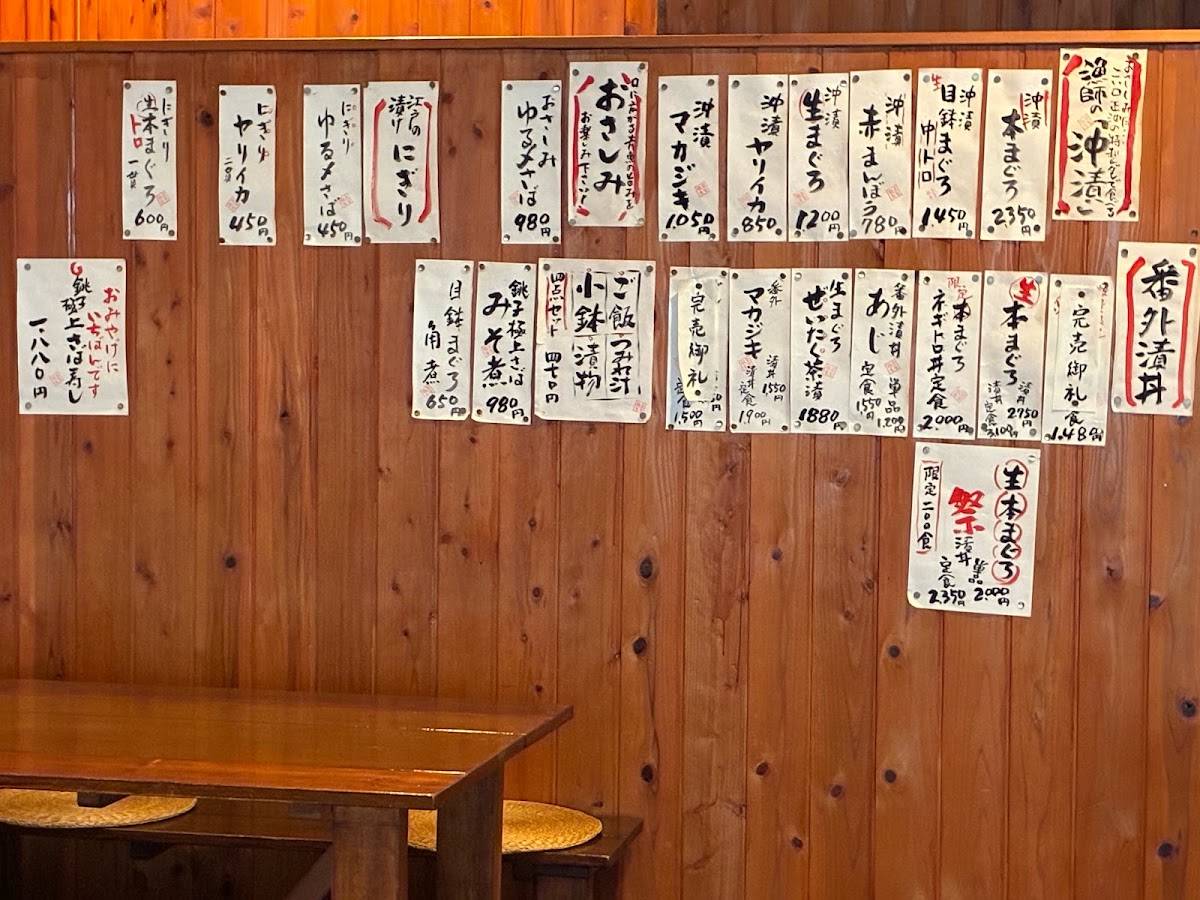 漁師の「沖漬」
沖漬
本まぐろ
2.350円
沖漬
生
目鉢まぐろ
中トロ
1.450円
沖漬
赤まんぼう
780円
沖漬
生まぐろ
1200円
沖漬
ヤリイカ
850円
沖漬
マカジキ
1.050円
おさしみ
お楽しみ下さい
おさしみ
ゆる〆さば
980円
江戸の
漬け
にぎり
にぎり
ゆる〆さば
450円
にぎり
ヤリイカ
二貫
450円
にぎり
生本まぐろ
トロ
一貫
600円
番外漬丼
完売御礼
食
1.480円
生
本まぐろ
漬丼
2750円
漬丼定食
3,100円
限定
本まぐろ
ネギトロ丼定食
2.000円
番外漬丼
あじ
単品
1,200円
定食
1550円
生まぐろ
ぜいたく茶漬
1880円
番外
マカジキ
漬丼
1550円
漬丼定食
1.900円
完売御礼
定食
1,500円
ご飯つみれ汁
小鉢漬物
四点セット 四七〇円
銚子極上さば
みそ煮
980円
目鉢まぐろ
角煮
650円
おみやげに
いちばんです
銚子極上さば寿し
一、八八〇円
生本まぐろ
祭
漬丼
単品
2.000円
定食
2,350円
限定二〇〇食